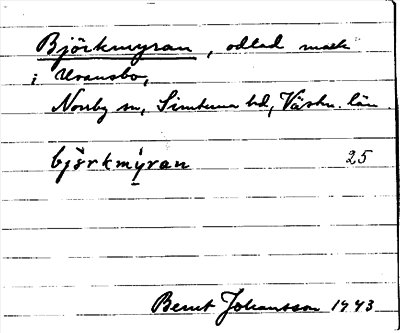 Björkmyran, odlad mark
i Uransbo,
Norrby sn, Simtuna hd, Västm. län.
björkmýran 25
Bernt Johansson 1943